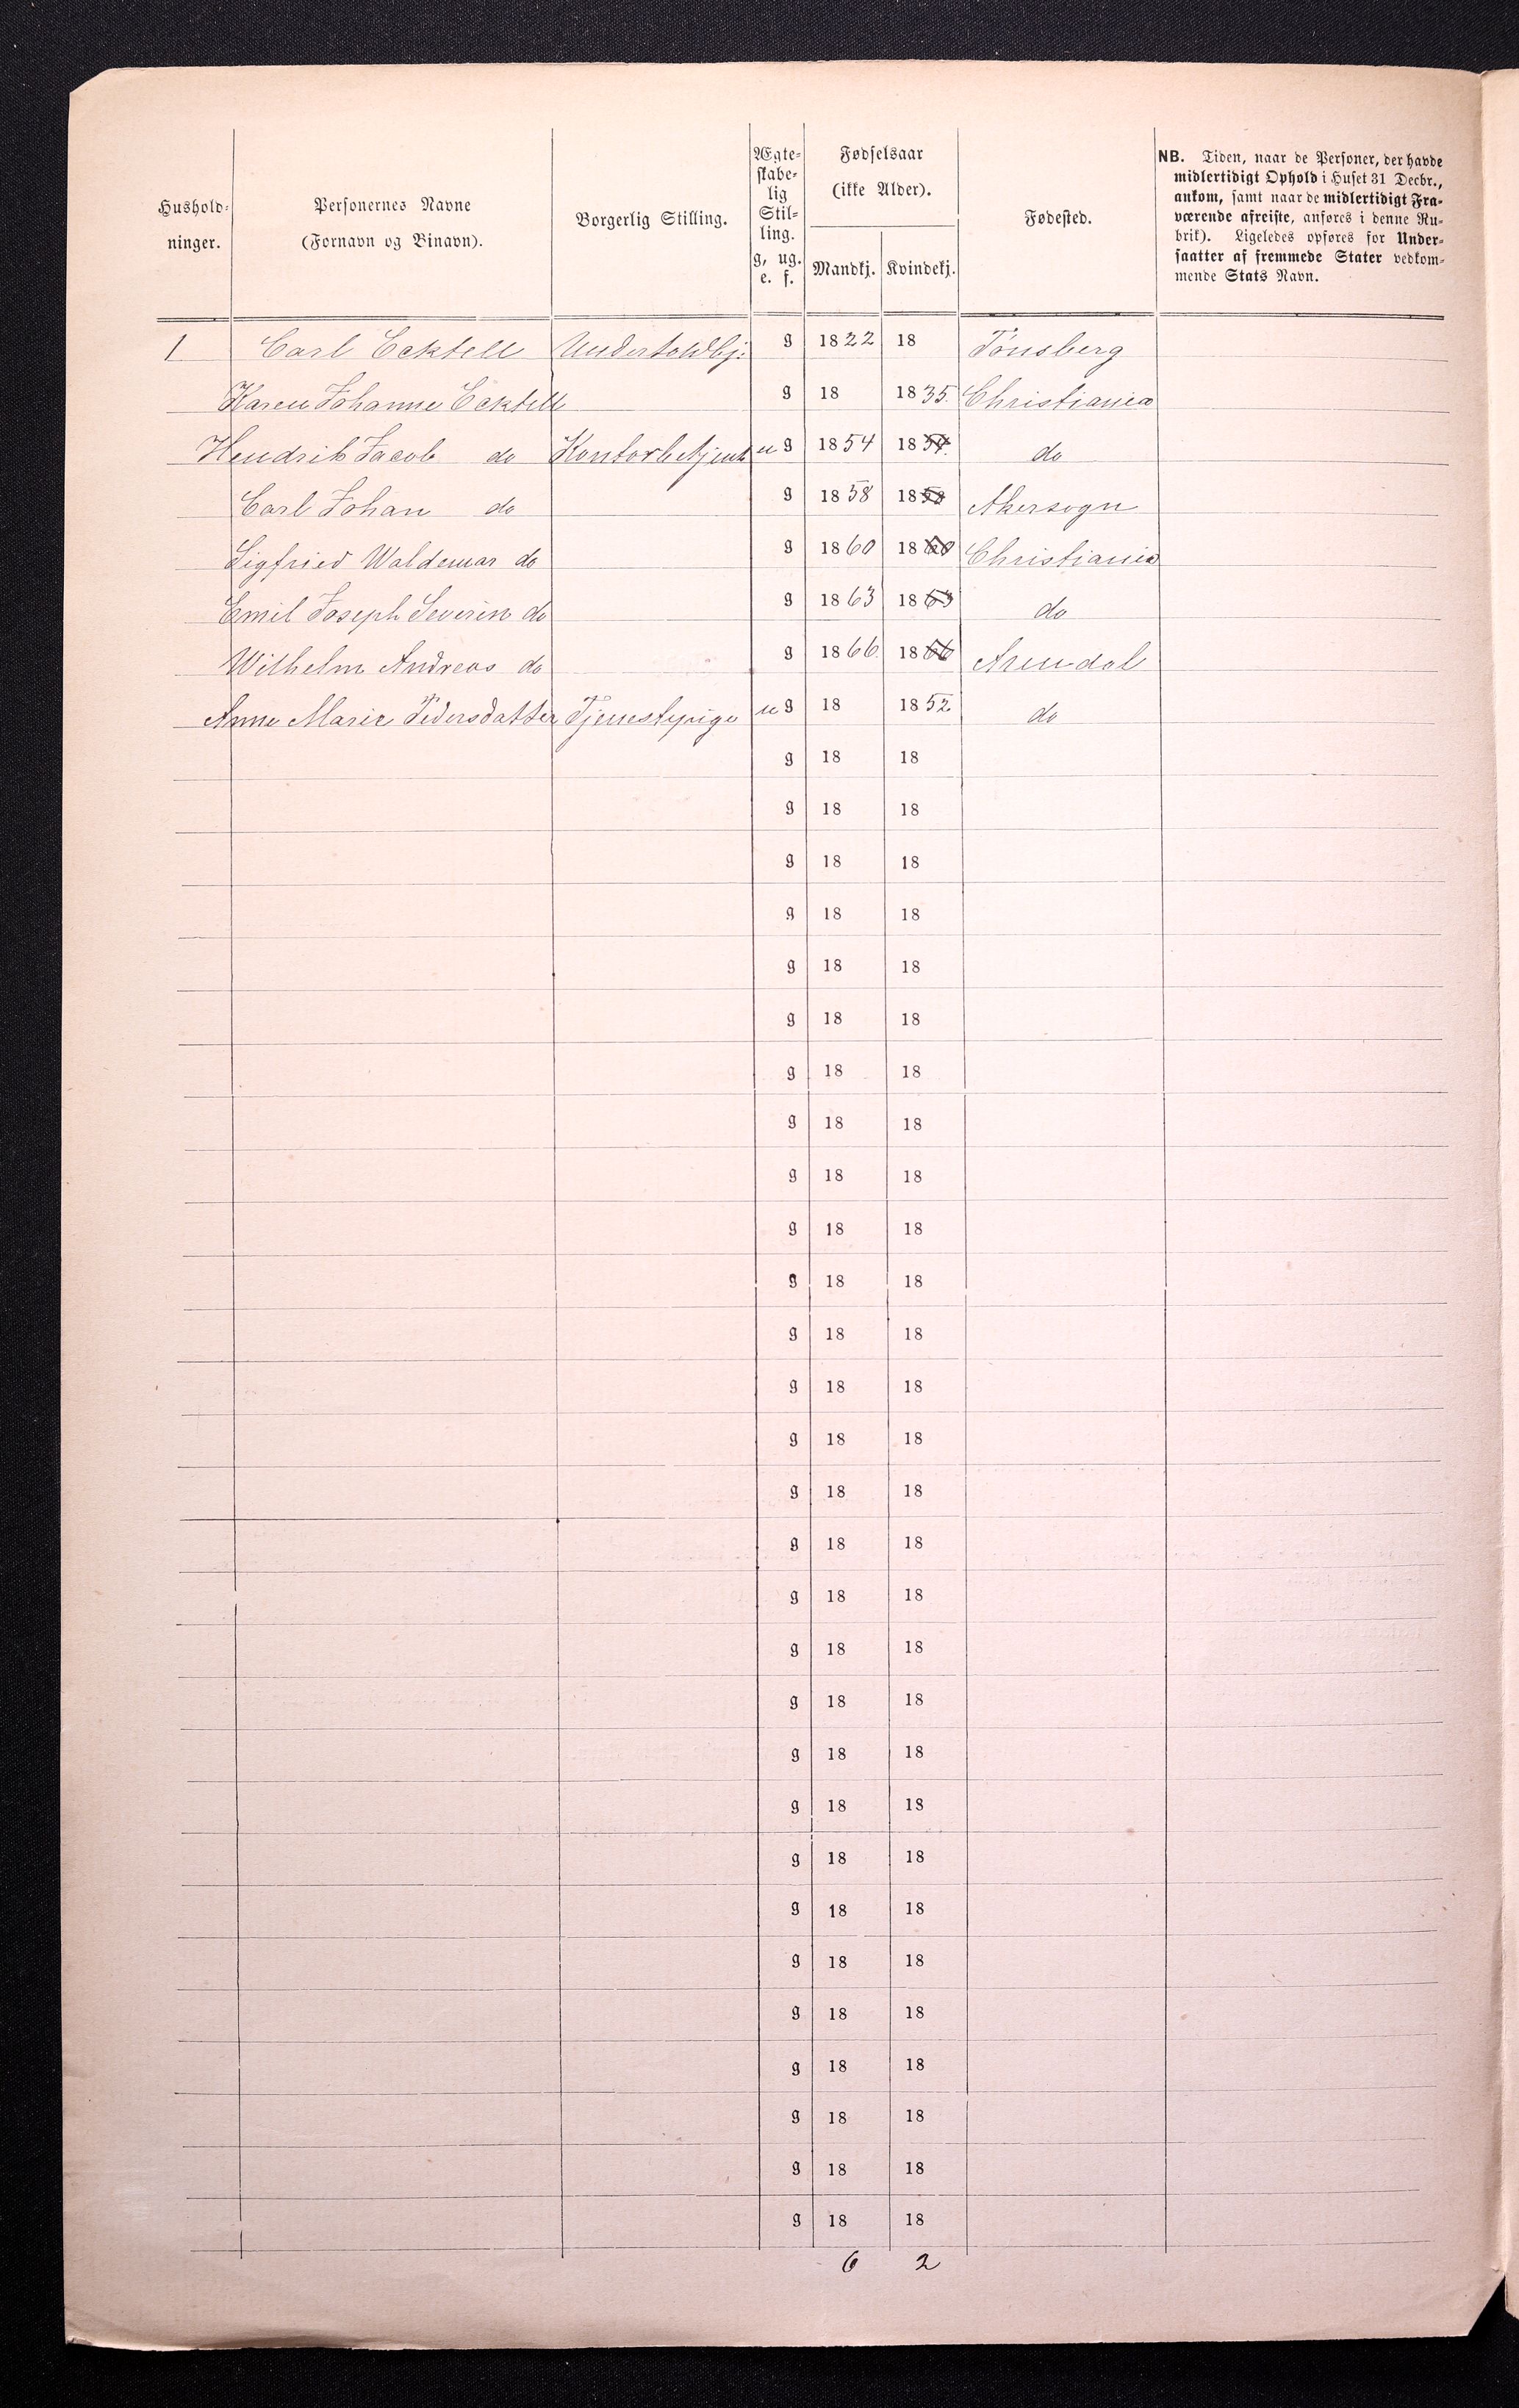 Hushold-
ninger.
Personernes Navne
(Fornavn og Binavn).
Borgerlig Stilling.
Ægte-
skabe-
lig
Stil-
ling.
g, ug.
e. f.
Fødselsaar
(ikke Alder).
Mandkj. Kvindekj.
Fødested.
NB. Tiden, naar de Personer, der havde
midlertidigt Ophold i Huset 31 Decbr.,
ankom, samt naar de midlertidigt Fra-
værende afreiste, anføres i denne Ru-
brik). Ligeledes opføres for Under-
saatter af fremmede Stater vedkom-
mende Stats Navn.
1 Carl Eckstell Undertoldbj: g 1822 18 Tönsberg
Karen Johanne Eckstell g 18 1835. Christiania
Hendrik Jacob do Kontorbetjent u g 1854 1854. do
Carl Johan do g 1858 1858 Akersogn
Sigfried Waldemar do g 1860 1860 Christiania
Emil Joseph Severin do g 1863 1863 do
Wilhelm Andreas do g 1866. 1866 Arendal
Anne Marie Pedersdatter Tjenestepige u g 18 1852 do
g 18 18
g 18 18
g 18 18
g 18 18
g 18 18
g 18 18
g 18 18
g 18 18
g 18 18
g 18 18
g 18 18
g 18 18
g 18 18
g 18 18
g 18 18
g 18 18
g 18 18
g 18 18
g 18 18
g 18 18
g 18 18
g 18 18
g 18 18
g 18 18
g 18 18
g 18 18
g 18 18
g 18 18
g 18 18
6 2